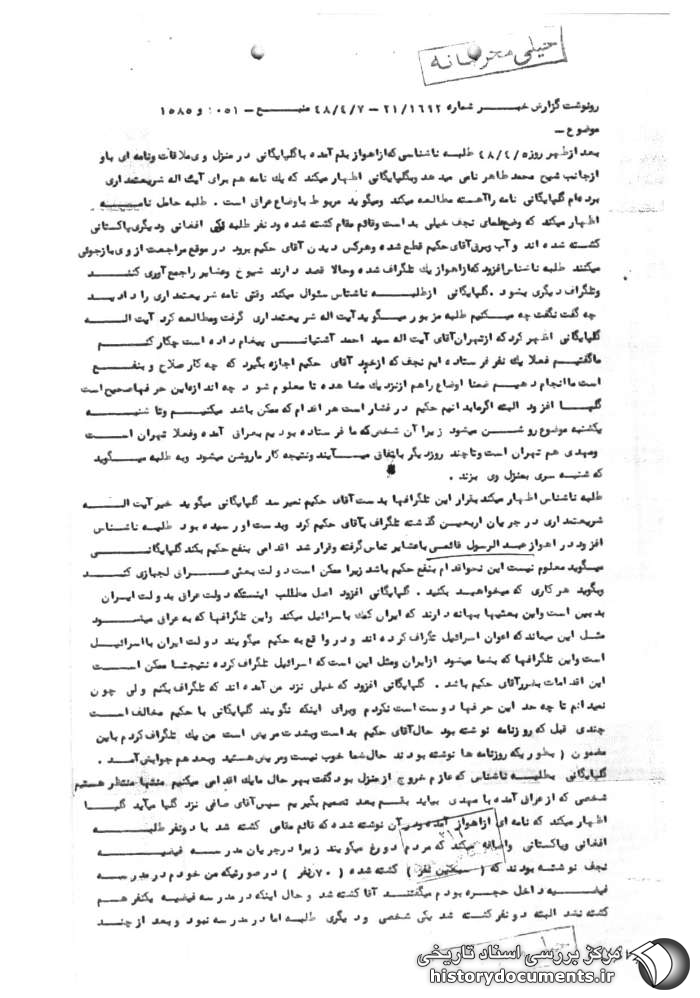 خیلی محرمانه
رونوشت گزارش خبر شماره ۲۱/۱۶۶۲ – ۴۸/۴/۷ منبع – ۱۰۵۱ و ۱۵۸۵
موضوع –
بعد از ظهر روز ۴۸/۴/۵ طلبه ناشناسی که از اهواز بقم آمده با گلپایگانی در منزل وی ملاقات ونامه ای باو
از جانب شیخ محمد طاهر نامی میدهد وبگلپایگانی اظهار میکند که یک نامه هم برای آیت اله شریعتمداری
برده ام گلپایگانی نامه را آهسته مطالعه میکند ومیگوید مربوط باوضاع عراق است . طلبه حامل نامه
اظهار میکند که وضع علمای نجف خیلی بد است وقائم مقام کشته شده ودنفر طلبه یکی افغانی ودیگری پاکستانی
کشته شده اند و آب وبرق آقای حکیم قطع شده وهرکس دیدن آقای حکیم برود در موقع مراجعت از وی بازجوئی
میکنند طلبه ناشناس افزود که از اهواز یک تلگراف شده وحالا قصد دارند شیوخ وعشایر را جمع آوری کنند
وتلگراف دیگری بشود . گلپایگانی از طلبه ناشناس سئوال میکند وقتی نامه شریعتمداری را دادید
چه گفت نگفت چه میکنیم طلبه مزبور میگوید آیت اله شریعتمداری گرفت ومطالعه کرد آیت اله
گلپایگانی اظهر کرد که از تهران آقای آیت اله سید احمد آشتیانی پیغام داده است چکار کنم
ما گفتیم فعلا یک نفر فرستاده ایم نجف که از خود آقای حکیم اجازه بگیرد که چه کار صلاح و بنفع
است ما انجام دهیم ضمنا اوضاع را هم از نزدیک مشاهده تا معلوم شود چه اندازه این حرفها صحیح است
گلپا افزود البته اگر ما بدانیم حکیم در فشار است هر اقدام که ممکن باشد میکنیم وتا شنبه
یکشنبه موضوع روشن میشود زیرا آن شخصی که ما فرستاده بودیم بعراق آمده وفعلا تهران است
ومهدی هم تهران است وتا چند روز دیگر باتفاق میآیند ونتیجه کار ما روشن میشود وبه طلبه میگوید
که شنبه سری بمنزل وی بزند .
طلبه ناشناس اظهار میکند بقرار این تلگرافها بدست آقای حکیم نمیرسد گلپایگانی میگوید خیر آیت اله
شریعتمداری در جریان اربعین گذشته تلگراف بآقای حکیم کرد وبدست او رسیده بود طلبه ناشناس
افزود در اهواز عبد الرسول قائمی با عشایر تماس گرفته وقرار شد اقدامی بنفع حکیم بکند گلپایگانی
میگوید معلوم نیست این نحو اقدام بنفع حکیم باشد زیرا ممکن است دولت بعثی عراق لجبازی کند
وبگوید هر کاری که میخواهید بکنید . گلپایگانی افزود اصل مطلب اینستکه دولت عراق بدولت ایران
بدبین است واین بعثیها بهانه دارند که ایران کمک باسرائیل میکند واین تلگرافها که به عراق میشود
مثل این میماند که اعوان اسرائیل تلگراف کرده اند و در واقع به حکیم میگویند دولت ایران با اسرائیل
است واین تلگرافها که بشما میشود از ایران ومثل این است که اسرائیل تلگراف کرده نتیجتا ممکن است
این اقدامات بضرر آقای حکیم باشد . گلپایگانی افزود که خیلی نزد من آمده اند که تلگراف بکنم ولی چون
نمیدانم تا چه حد این حرفها درست است نکردم وبرای اینکه نگویند گلپایگانی با حکیم مخالف است
چندی قبل که روزنامه نوشته بود حال آقای حکیم بد است وبشدت مریض است من یک تلگراف کردم باین
مضمون ( بطوریکه روزنامه ها نوشته بودند حال شما خوب نیست ومریض هستید وبعد هم جوابش آمد .
گلپایگانی بطلبه ناشناس که عازم خروج از منزل بود گفت بهر حال ما یک اقدامی میکنیم منتها منتظر هستیم
شخصی که از عراق آمده با مهدی بیاید بقم بعد تصمیم بگیریم سپس آقای صافی نزد گلپا میآید گلپا
اظهار میکند که نامه ای از اهواز آمده ودر آن نوشته شده که قائم مقامی کشته شد با دونفر طلبه
افغانی وپاکستانی واضافه میکند که مردم دروغ میگویند زیرا در جریان مدرسه فیضیه
نجف نوشته بودند که ( سبعین نفر ) کشته شده ( ۷۰ نفر ) در صورتیکه من خودم در مدرسه
فیضیه داخل حجره بودم میگفتند آقا کشته شد و حال اینکه در مدرسه فیضیه یکنفر هم
کشته نشد البته دو نفر کشته شد یکی شخصی ودیگری طلبه اما در مدرسه نبود و بعد از چند
مرکز بررسی اسناد تاریخی
historydocuments.ir